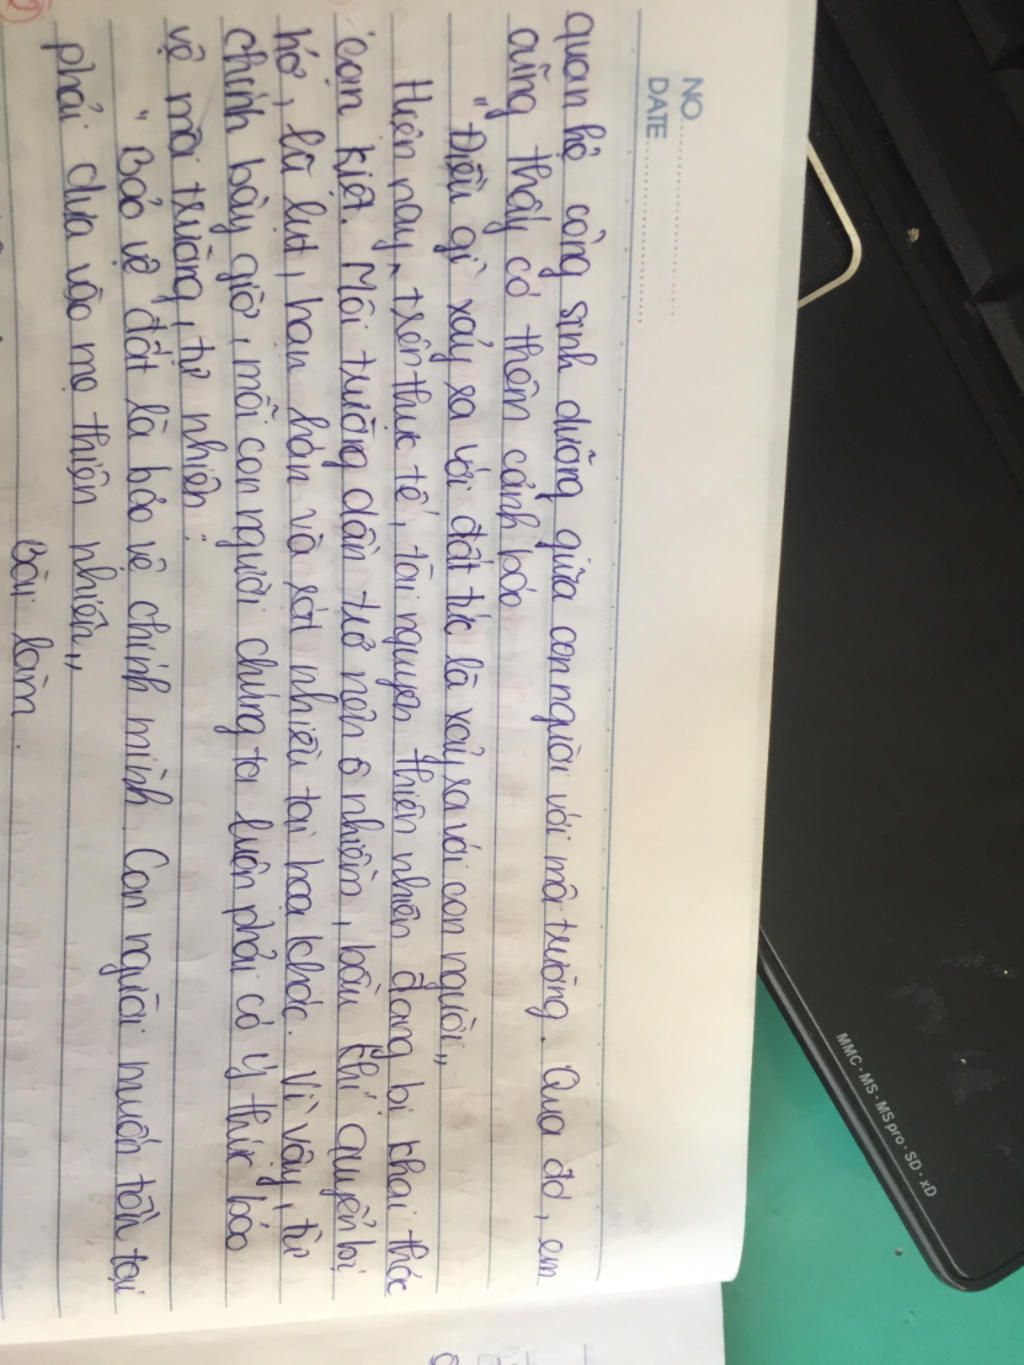 NO.
DATE
quan hệ công sinh dưỡng giữa con người với môi trường. Qua đó, em
cũng thấy có thêm cảnh báo
"Điều gì xảy ra với đất tức là xảy ra với con người"
Hiện nay, trên thực tế, tài nguyên thiên nhiên đang bị khai thác
cạn kiệt. Môi trường dần trở nên ô nhiễm, bầu khí quyển bị
hở, lũ lụt, hạn hán và rất nhiều tai hoạ khác. Vì vậy, từ
chính bây giờ, mỗi con người chúng ta luôn phải có ý thức bảo
vệ môi trường, tự nhiên.
"Bảo vệ đất là bảo vệ chính mình. Con người muốn tồn tại
phải dựa vào mẹ thiên nhiên"
Bài làm.
MMC·MS·MS pro·SD·xD